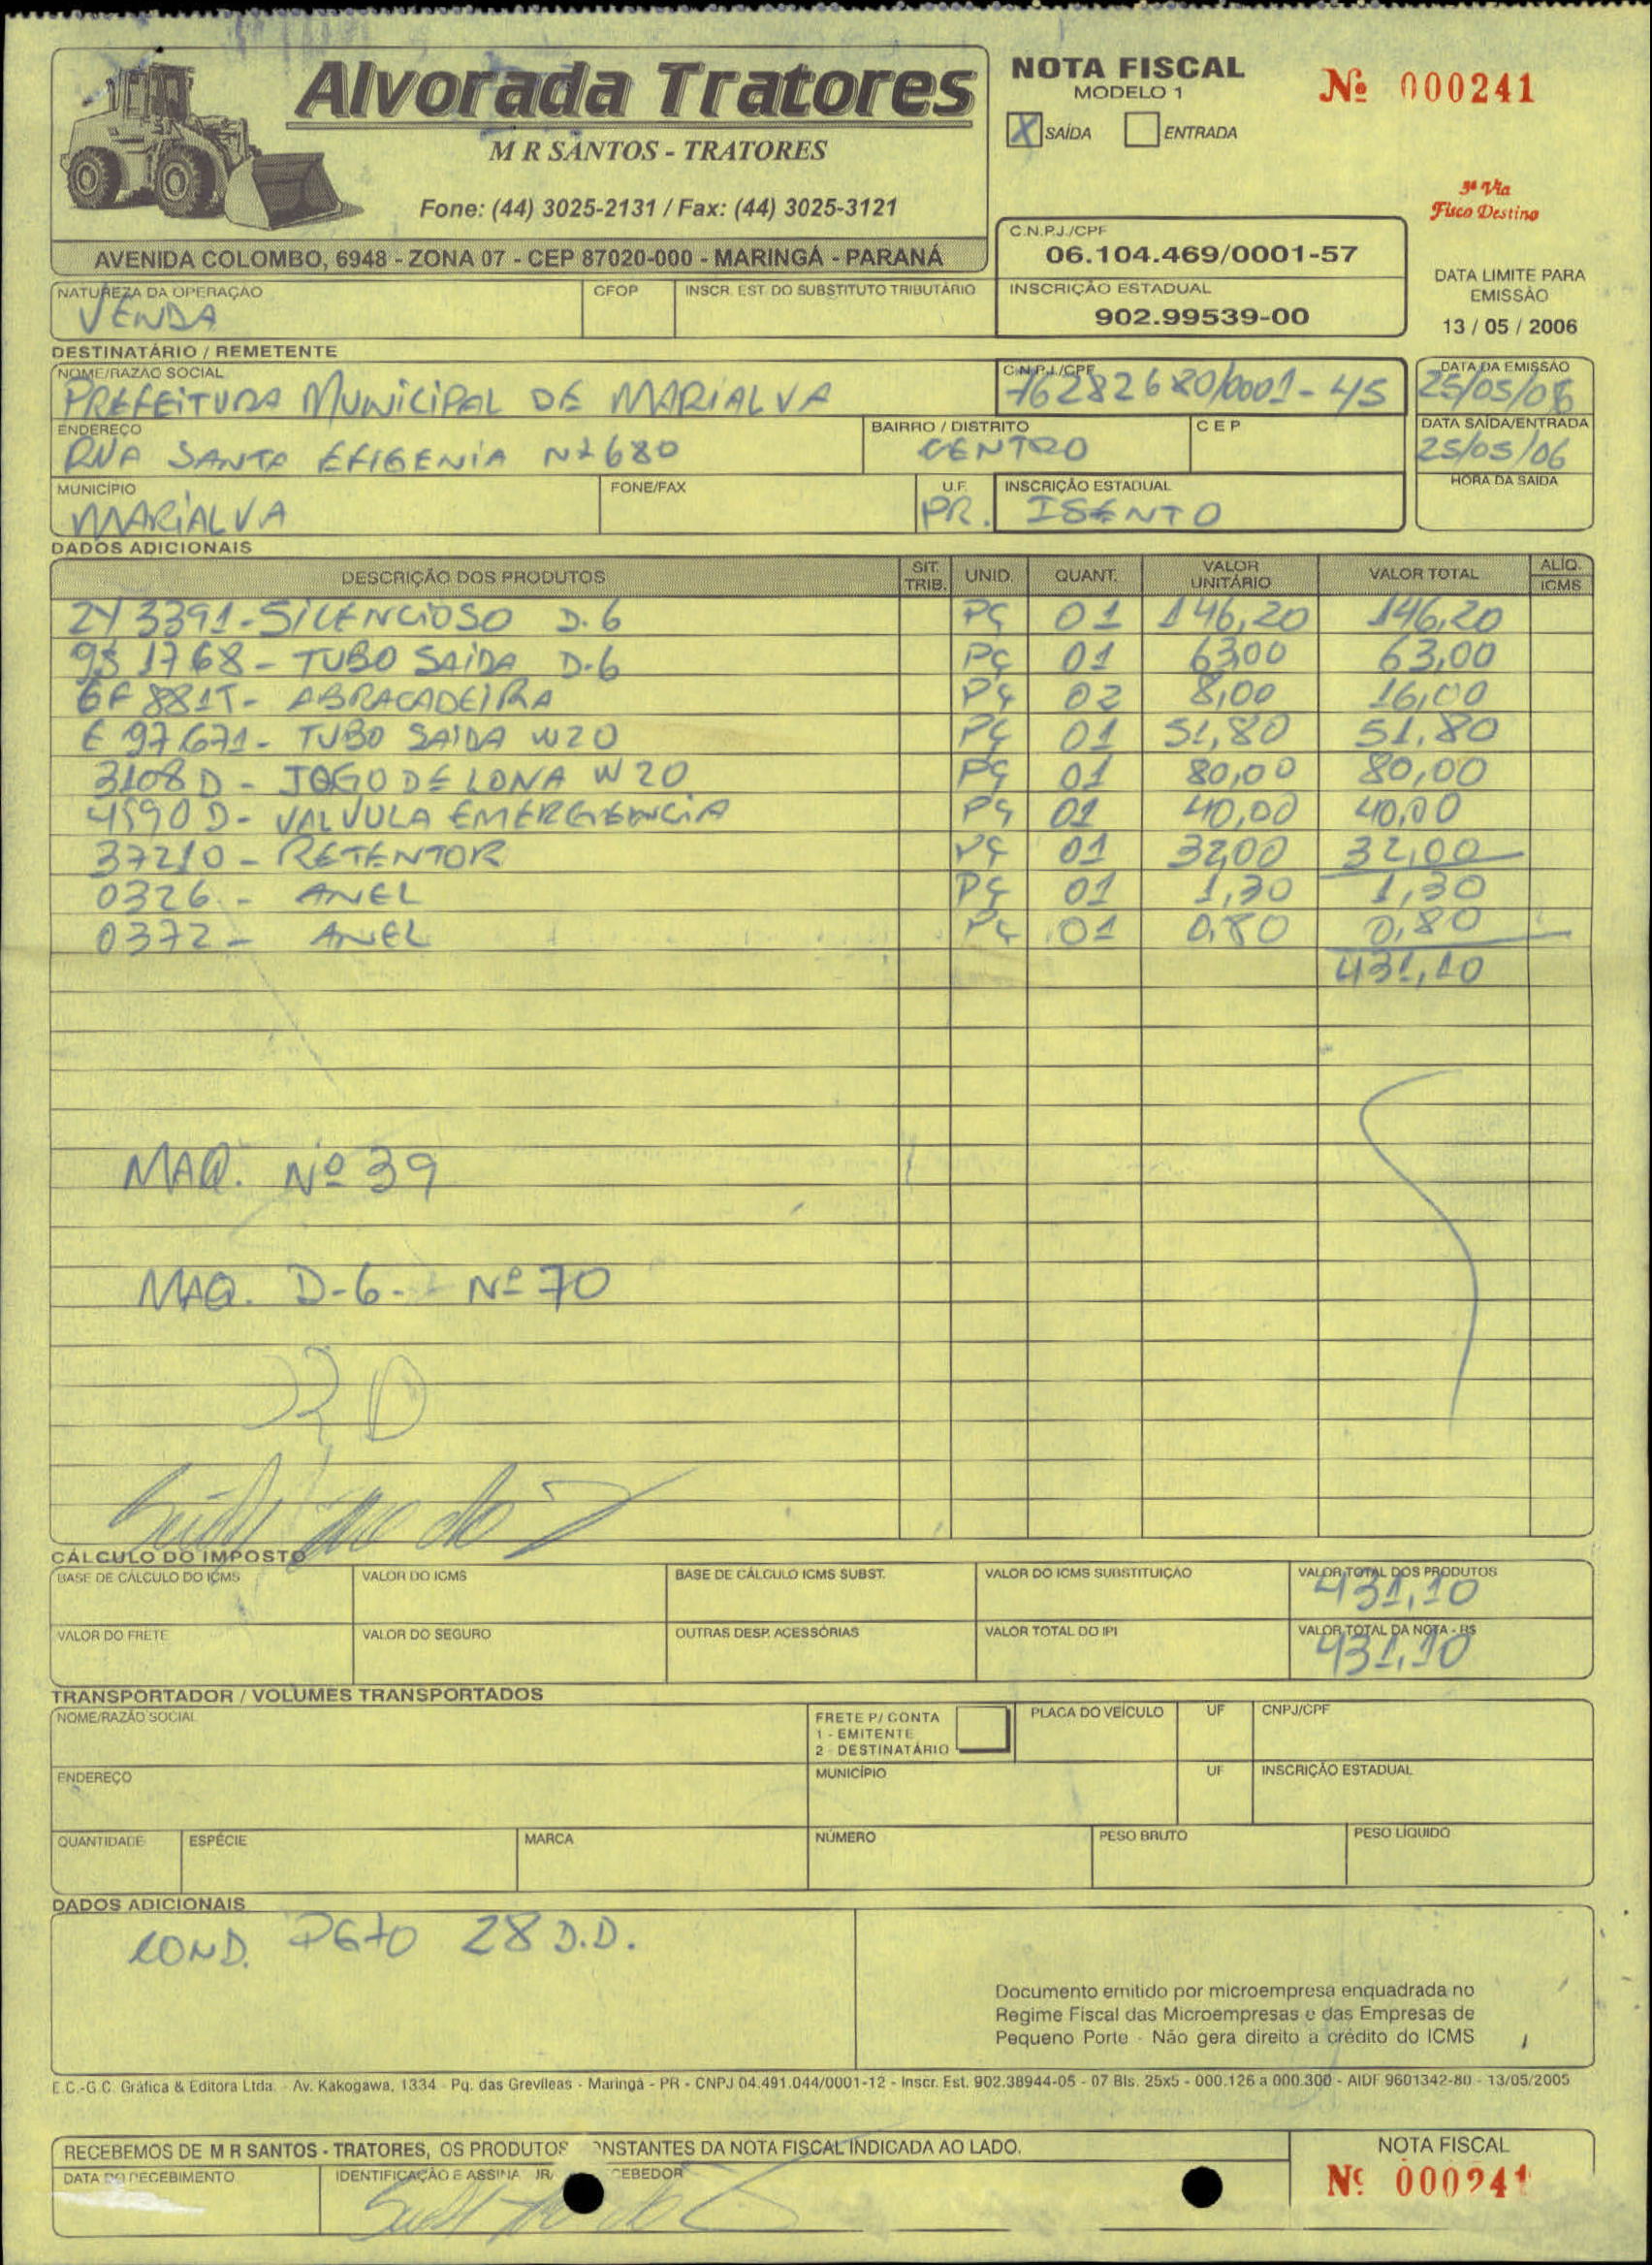 Alvorada Tratores
M R SANTOS - TRATORES
Fone: (44) 3025-2131 / Fax: (44) 3025-3121
AVENIDA COLOMBO, 6948 - ZONA 07 - CEP 87020-000 - MARINGÁ - PARANÁ
NOTA FISCAL
MODELO 1
X SAÍDA ENTRADA
Nº 000241
3ª Via
Fisco Destino
C.N.P.J./CPF
06.104.469/0001-57
INSCRIÇÃO ESTADUAL
902.99539-00
DATA LIMITE PARA
EMISSÃO
13 / 05 / 2006
NATUREZA DA OPERAÇÃO CFOP INSCR. EST. DO SUBSTITUTO TRIBUTÁRIO
VENDA
DESTINATÁRIO / REMETENTE
NOME/RAZÃO SOCIAL C.N.P.J./CPF DATA DA EMISSÃO
PREFEITURA MUNICIPAL DE MARIALVA 76282680/0001-45 25/05/06
ENDEREÇO BAIRRO / DISTRITO CEP DATA SAÍDA/ENTRADA
RUA SANTA EFIGENIA Nº 680 CENTRO 25/05/06
MUNICÍPIO FONE/FAX U.F. INSCRIÇÃO ESTADUAL HORA DA SAÍDA
MARIALVA PR. ISENTO
DADOS ADICIONAIS
DESCRIÇÃO DOS PRODUTOS SIT. TRIB. UNID. QUANT. VALOR UNITÁRIO VALOR TOTAL ALÍQ. ICMS
2Y3391-SILENCIOSO D.6 PÇ 01 146,20 146,20
9S1768- TUBO SAIDA D-6 PÇ 01 63,00 63,00
6F881T- ABRACADEIRA PÇ 02 8,00 16,00
E97671- TUBO SAIDA W20 PÇ 01 51,80 51,80
3108D - JOGO DE LONA W20 PÇ 01 80,00 80,00
4590D- VALVULA EMERGENCIA PÇ 01 40,00 40,00
37210 - RETENTOR PÇ 01 32,00 32,00
0326 - ANEL PÇ 01 1,30 1,30
0372 - ANEL PÇ 01 0,80 0,80
431,10
MAQ. Nº 39
MAQ. D-6- Nº 70
CÁLCULO DO IMPOSTO
BASE DE CÁLCULO DO ICMS VALOR DO ICMS BASE DE CÁLCULO ICMS SUBST. VALOR DO ICMS SUBSTITUIÇÃO VALOR TOTAL DOS PRODUTOS
431,10
VALOR DO FRETE VALOR DO SEGURO OUTRAS DESP. ACESSÓRIAS VALOR TOTAL DO IPI VALOR TOTAL DA NOTA - R$
431,10
TRANSPORTADOR / VOLUMES TRANSPORTADOS
NOME/RAZÃO SOCIAL FRETE P/ CONTA PLACA DO VEÍCULO UF CNPJ/CPF
1 - EMITENTE
2 - DESTINATÁRIO
ENDEREÇO MUNICÍPIO UF INSCRIÇÃO ESTADUAL
QUANTIDADE ESPÉCIE MARCA NÚMERO PESO BRUTO PESO LÍQUIDO
DADOS ADICIONAIS
COND. PGTO 28 D.D.
Documento emitido por microempresa enquadrada no
Regime Fiscal das Microempresas e das Empresas de
Pequeno Porte - Não gera direito a crédito do ICMS
E.C.-G.C. Gráfica & Editora Ltda. - Av. Kakogawa, 1334 - Pq. das Grevíleas - Maringá - PR - CNPJ 04.491.044/0001-12 - Inscr. Est. 902.38944-05 - 07 Bls. 25x5 - 000.126 a 000.300 - AIDF 9601342-80 - 13/05/2005
RECEBEMOS DE M R SANTOS - TRATORES, OS PRODUTOS ONSTANTES DA NOTA FISCAL INDICADA AO LADO.
DATA DO RECEBIMENTO IDENTIFICAÇÃO E ASSINA UR CEBEDOR
NOTA FISCAL
Nº 000241